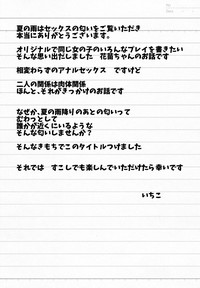 夏の雨はセックスの匂いをご覧いただき
本当にありがとうございます。
オリジナルで同じ女の子のいろんなプレイを書きたい
そんな思い出だしました 花苗ちゃんのお話です
相変わらずのアナルセックス ですけど
二人の関係は肉体関係
ほんと、それがきっかけのお話です
なぜか、夏の雨降りのあとの匂いって
むわっとして
誰かが近くにいるような
そんな匂いしませんか?
そんなきもちでこのタイトルつけました
それでは すこしでも楽しんでいただけたら幸いです
いちこ